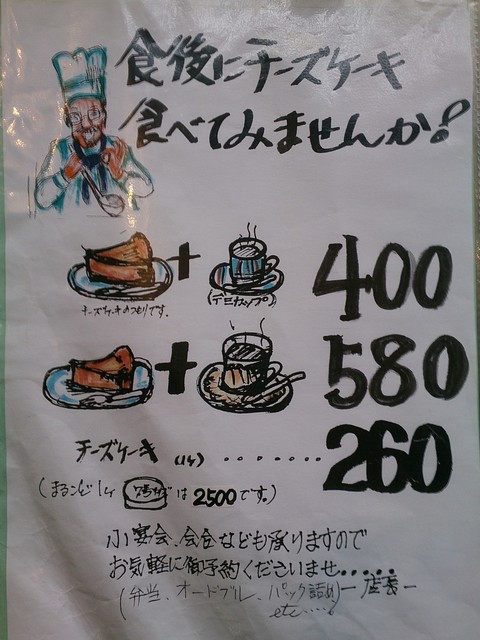 食後にチーズケーキ
食べてみませんか?
+ 400
(デミカップ)
チーズケーキのつもりです.
+ 580
チーズケーキ (1ケ) ········ 260
(まるごと1ケ は2500です。)
小宴会、会合なども承りますので
お気軽に御予約くださいませ.....
(弁当、オードブル、パック詰め) ー店長ー
etc....